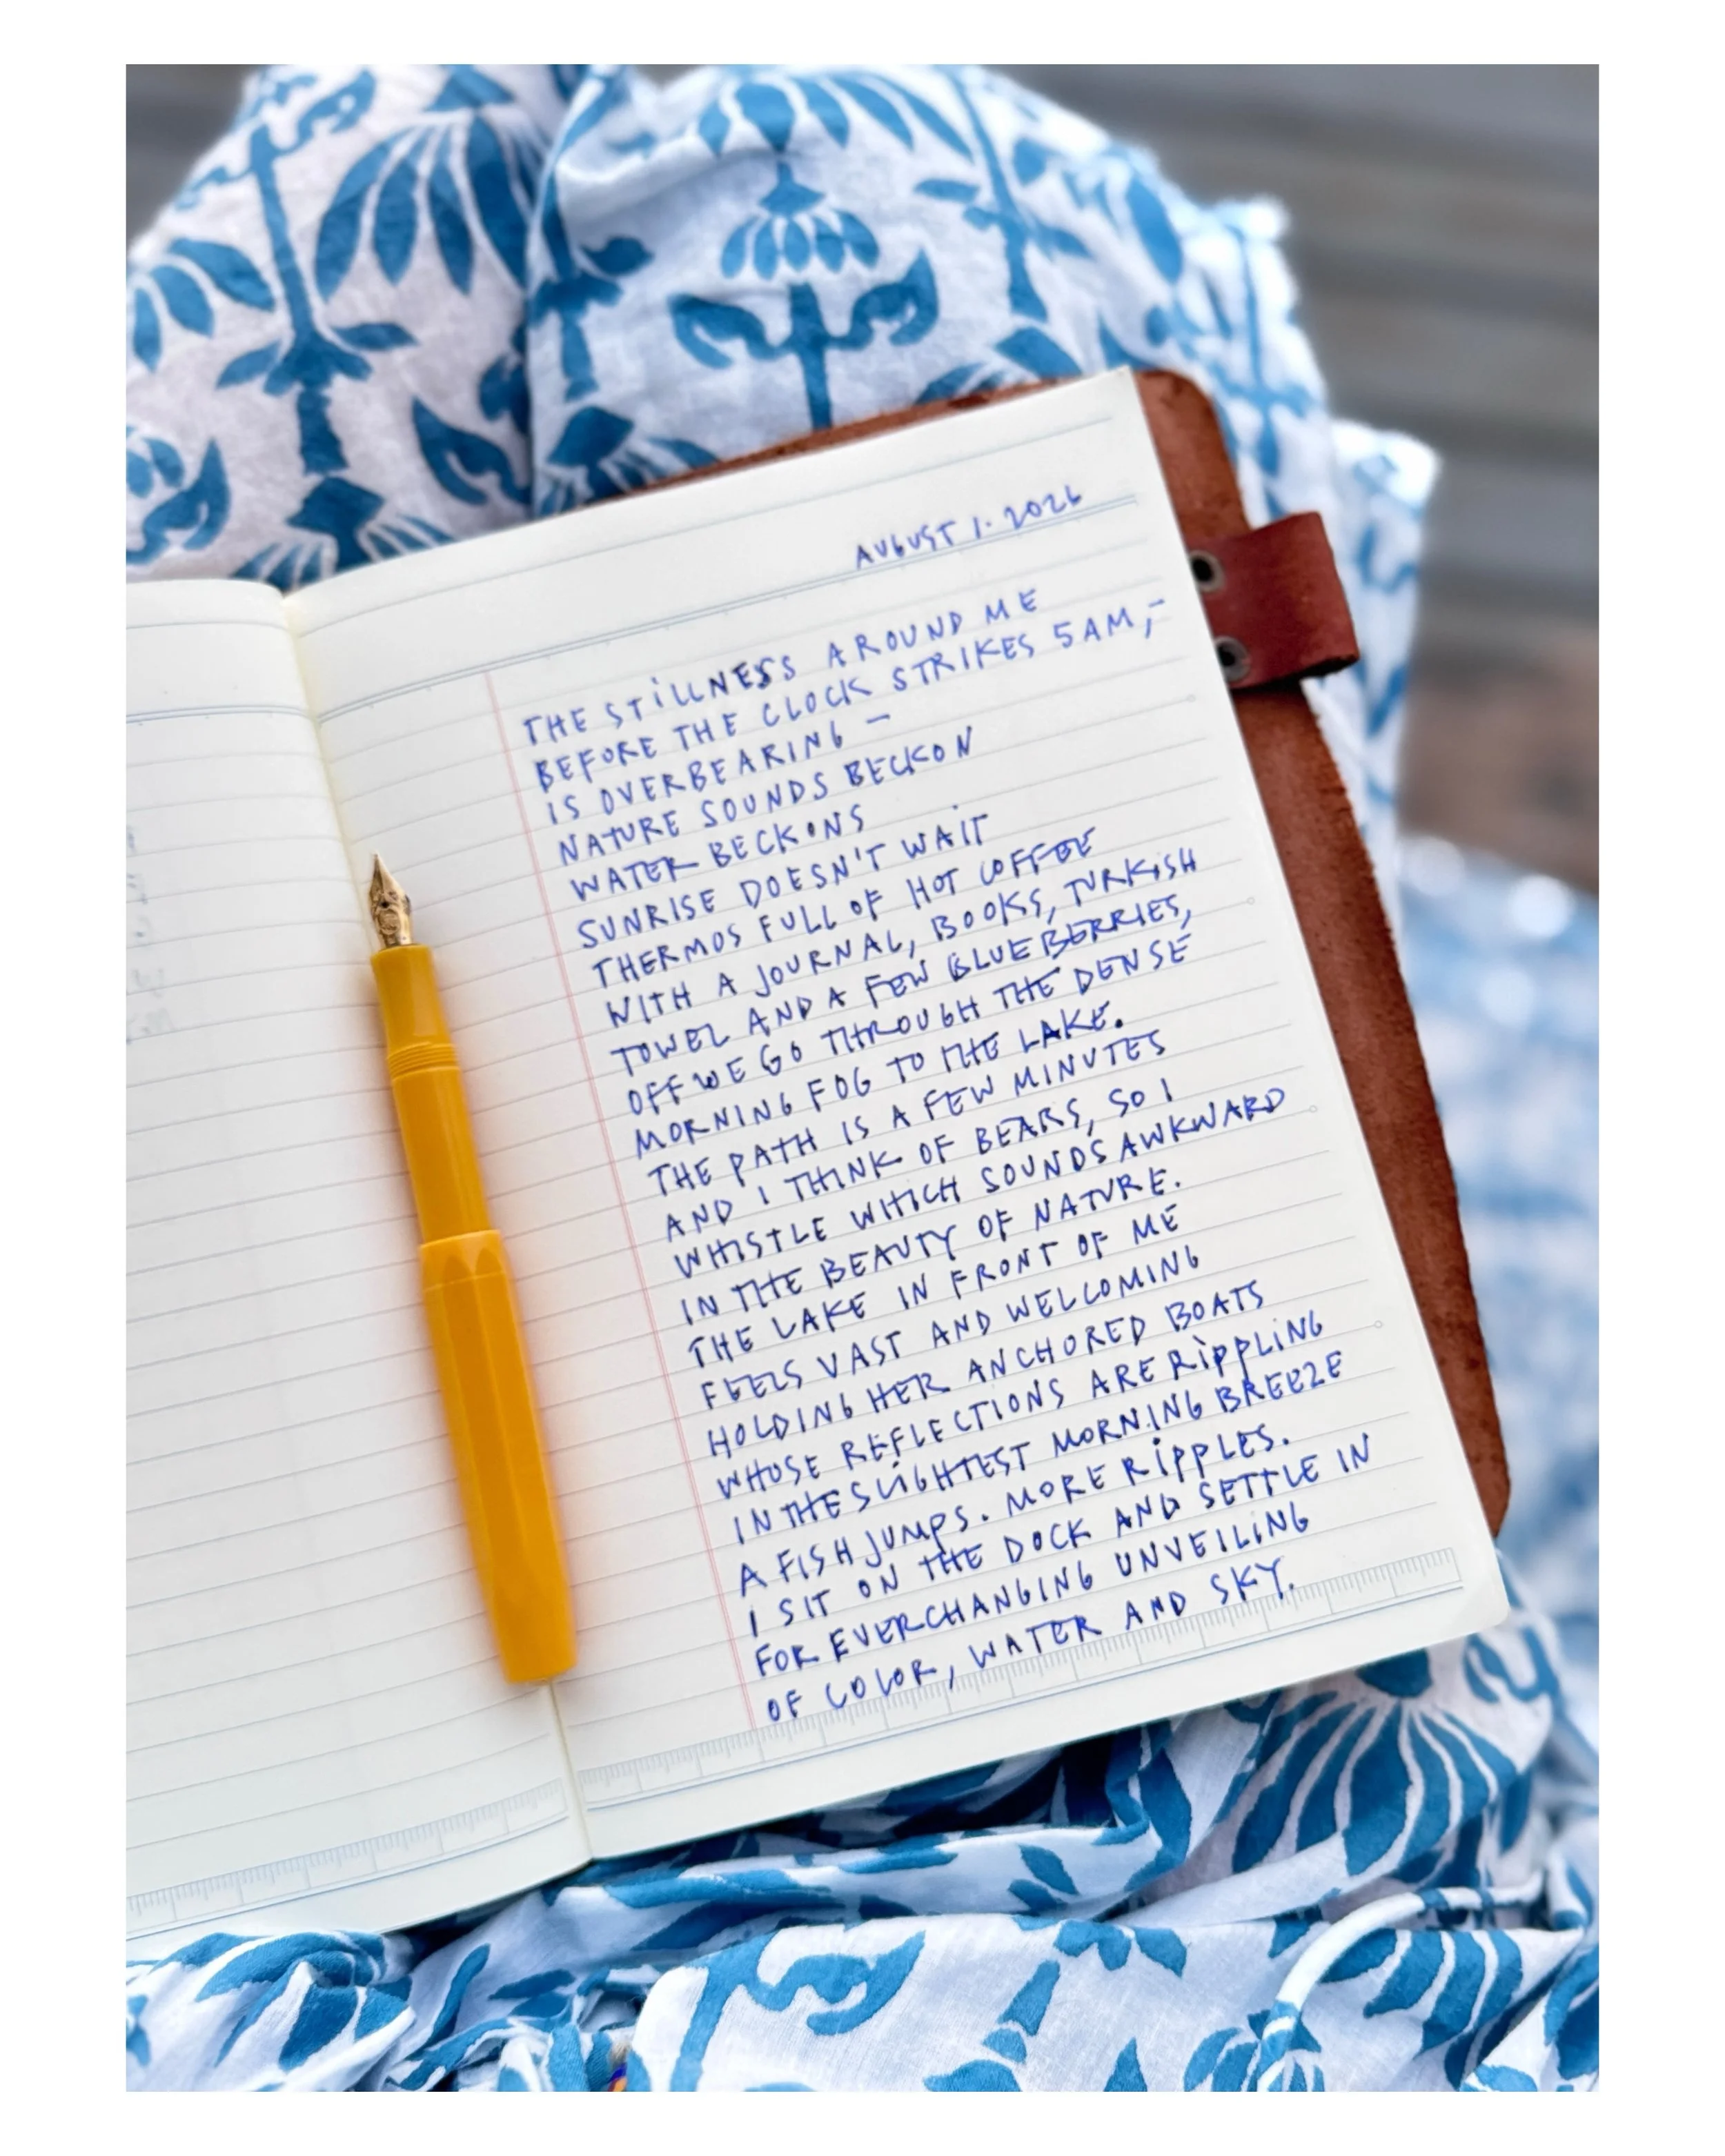 AUGUST 1. 2026
THE STILLNESS AROUND ME
BEFORE THE CLOCK STRIKES 5AM,-
IS OVERBEARING -
NATURE SOUNDS BECKON
WATER BECKONS
SUNRISE DOESN'T WAIT
THERMOS FULL OF HOT COFFEE
WITH A JOURNAL, BOOKS, TURKISH
TOWEL AND A FEW BLUEBERRIES,
OFF WE GO THROUGH THE DENSE
MORNING FOG TO THE LAKE.
THE PATH IS A FEW MINUTES
AND I THINK OF BEARS, SO I
WHISTLE WHICH SOUNDS AWKWARD
IN THE BEAUTY OF NATURE.
THE LAKE IN FRONT OF ME
FEELS VAST AND WELCOMING
HOLDING HER ANCHORED BOATS
WHOSE REFLECTIONS ARE RIPPLING
IN THE SLIGHTEST MORNING BREEZE
A FISH JUMPS. MORE RIPPLES.
I SIT ON THE DOCK AND SETTLE IN
FOR EVERCHANGING UNVEILING
OF COLOR, WATER AND SKY.